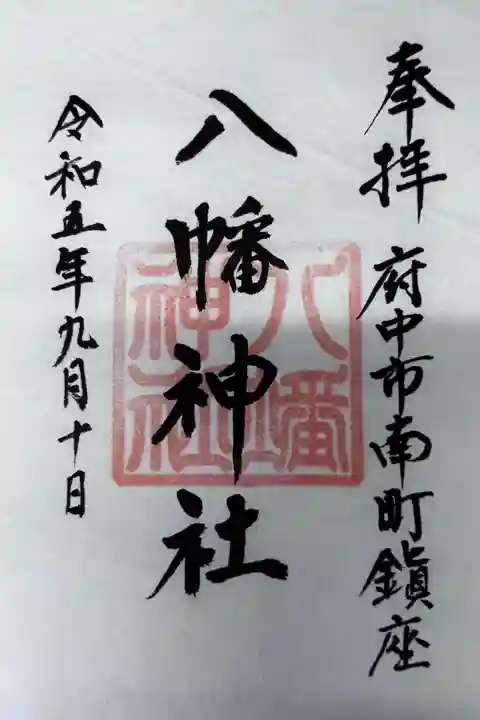 奉拝 府中市南町鎮座
八幡神社
八幡
神社
令和五年九月十日